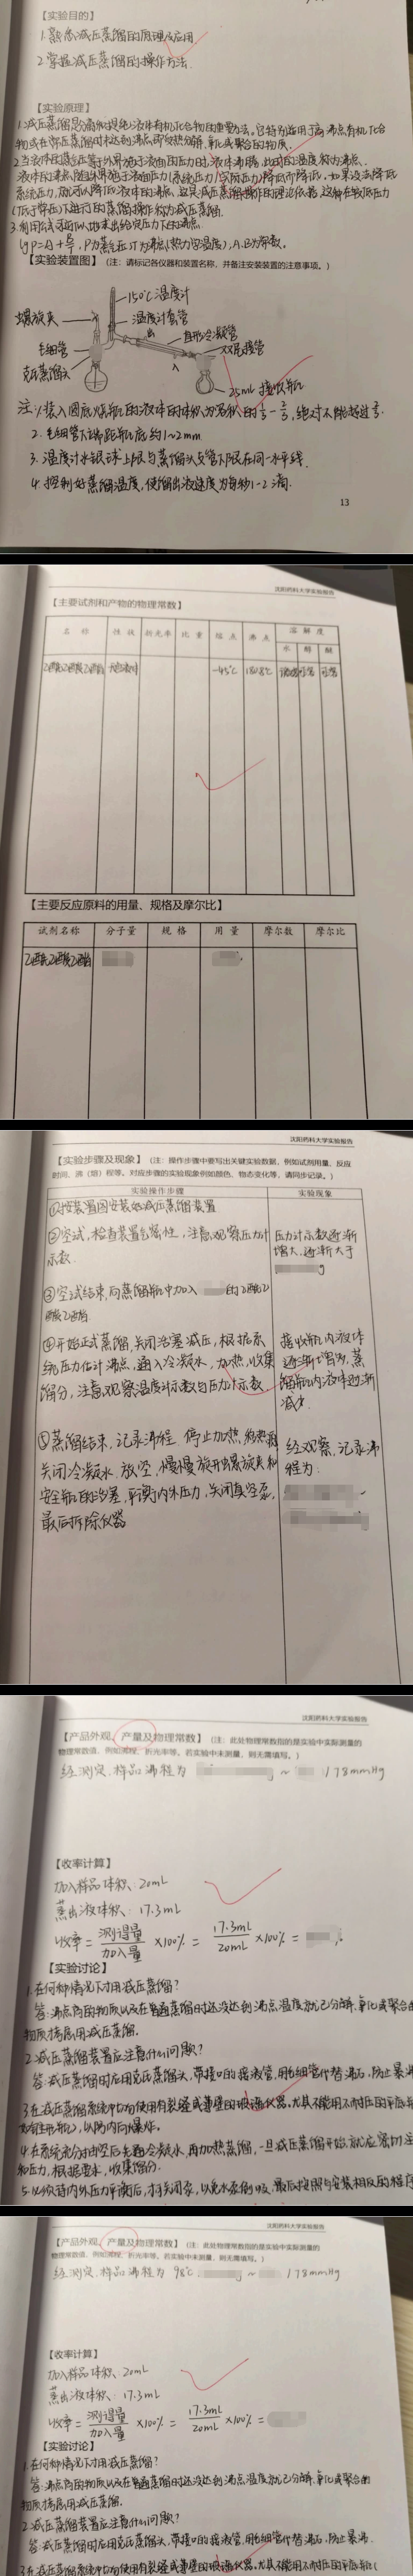 【实验目的】
1.熟悉减压蒸馏的原理及应用
2.掌握减压蒸馏的操作方法.
【实验原理】
1.减压蒸馏是分离和提纯液体有机化合物的重要方法,它特别适用于高沸点有机化合
物或在常压蒸馏时未达到沸点即受热分解,氧化或聚合的物质.
2.当液体的蒸气压等于外界施于液面的压力时,液体沸腾,此时的温度称为沸点.
液体的沸点随外界施于液面压力(系统压力)的降低而降低.如果设法降低
系统压力,就可以降低液体的沸点,这是减压蒸馏操作的理论依据,这种在较低压力
(低于常压)下进行的蒸馏操作称为减压蒸馏.
lgP=A+B/T,P为蒸气压,T为沸点(热力学温度),A.B为常数。
【实验装置图】(注:请标记各仪器和装置名称,并备注安装装置的注意事项。)
150℃温度计
螺旋夹
温度计套管
出
直形冷凝管
毛细管
双尾接管
克氏蒸馏头
入
25mL 接收瓶
注:1.装入圆底烧瓶的液体的体积为容积的1/3-2/3,绝对不能超过2/3.
2.毛细管下端距瓶底约1~2mm
3.温度计水银球上限与蒸馏头支管下限在同一水平线.
4.控制好蒸馏温度,使馏出液速度为每秒1-2滴.
13
沈阳药科大学实验报告
【主要试剂和产物的物理常数】
名 称 性 状 折光率 比 重 熔 点 沸 点 溶 解 度
水 醇 醚
乙酰乙酸乙酯 -45℃ 180.8℃
【主要反应原料的用量、规格及摩尔比】
试剂名称 分子量 规 格 用 量 摩尔数 摩尔比
乙酰乙酸乙酯
沈阳药科大学实验报告
【实验步骤及现象】(注:操作步骤中要写出关键实验数据,例如试剂用量、反应
时间、沸(熔)程等。对应步骤的实验现象例如颜色、物态变化等,请同步记录。)
实验操作步骤 实验现象
①按装置图安装好减压蒸馏装置
②空试,检查装置气密性,注意观察压力计
示数.
压力计示数逐渐
增大,逐渐大于
③空试结束,向蒸馏瓶中加入 的乙酰乙
酸乙酯.
④开始正式蒸馏,关闭活塞减压,根据系
统压力估计沸点,通入冷凝水,加热,收集
馏分,注意观察温度计示数与压力计示数
接收瓶内液体
逐渐增多,蒸
馏瓶内液体逐渐
减少.
⑤蒸馏结束,记录沸程,停止加热,
关闭冷凝水,放空,慢慢旋开螺旋夹和
安全瓶的活塞,平衡内外压力,关闭真空泵,
最后拆除仪器
经观察,记录沸
程为:
沈阳药科大学实验报告
【产品外观、产量及物理常数】(注:此处物理常数指的是实验中实际测量的
物理常数值,例如沸程、折光率等。若实验中未测量,则无需填写。)
经测定,样品沸程为 ~ /78mmHg
【收率计算】
加入样品体积:20mL
蒸出液体积:17.3mL
收率=测得量/加入量×100%=17.3mL/20mL×100%= %
【实验讨论】
1.在何种情况下才用减压蒸馏?
答:沸点高的物质以及在普通蒸馏时还没达到沸点温度就已分解,氧化或聚合的
物质考虑用减压蒸馏.
2.减压蒸馏装置应注意什么问题?
答:减压蒸馏时应用克氏蒸馏头,带接口的接液管,用毛细管代替沸石,防止暴沸
3.在减压蒸馏系统中切勿使用有裂缝或薄壁的玻璃仪器.尤其不能用不耐压的平底瓶
,以防内向爆炸.
4.在系统充分抽空后通冷凝水,再加热蒸馏,一旦减压蒸馏开始,就应密切注
和压力,根据要求,收集馏分.
5.必须待内外压力平衡后,才可关闭泵,以免水泵倒吸,最后按照与安装相反的程序
沈阳药科大学实验报告
【产品外观、产量及物理常数】(注:此处物理常数指的是实验中实际测量的
物理常数值,例如沸程、折光率等。若实验中未测量,则无需填写。)
经测定,样品沸程为98℃ ~ /78mmHg
【收率计算】
加入样品体积:20mL
蒸出液体积:17.3mL
收率=测得量/加入量×100%=17.3mL/20mL×100%=
【实验讨论】
1.在何种情况下才用减压蒸馏?
答:沸点高的物质以及在普通蒸馏时还没达到沸点温度就已分解,氧化或聚合的
物质考虑用减压蒸馏.
2.减压蒸馏装置应注意什么问题?
答:减压蒸馏时应用克氏蒸馏头,带接口的接液管,用毛细管代替沸石,防止暴沸.
3.在减压蒸馏系统中切勿使用有裂缝或薄壁的玻璃仪器.尤其不能用不耐压的平底瓶(